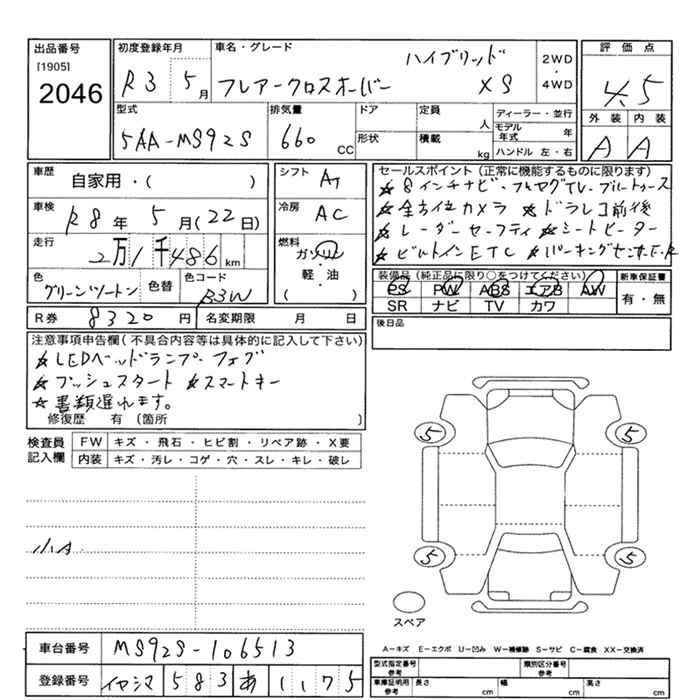 出品番号
[1905]
2046
初度登録年月
R3 5月
車名・グレード
ハイブリッド
フレアークロスオーバー XS
2WD
・
4WD
評価点
4.5
外装 内装
A A
型式
5AA-MS92S
排気量
660 CC
ドア
形状
定員
人
積載
kg
ディーラー・並行
モデル年式 年
ハンドル 左・右
車歴
自家用・( )
車検
R8年5月(22日)
走行
2万1千486km
色
グリーンツートン
色替
色コード
B3W
シフト
AT
冷房
AC
燃料
ガソリン
・
軽・油
( )
セールスポイント(正常に機能するものに限ります)
★8インチナビ・フルセグTV・ブルートゥース
★全方位カメラ ★ドラレコ前後
★レーダーセーフティ ★シートヒーター
★ビルトインETC ★パーキングセンサF・R
装備品(純正品に限り○をつけてください)
PS PW ABS エアB AW
SR ナビ TV カワ
新車保証書
有・無
R券 8320円
名変期限 月 日
後日品
注意事項申告欄(不具合内容等は具体的に記入して下さい)
★LEDヘッドランプ・フォグ
★プッシュスタート ★スマートキー
★書類遅れます。
修復歴 有 〔箇所 〕
検査員記入欄
FW キズ・飛石・ヒビ割・リペア跡・X要
内装 キズ・汚レ・コゲ・穴・スレ・キレ・破レ
小A
5 5
5 5
スペア
A−キズ E−エクボ U−凹み W−補修跡 S−サビ C−腐食 XX−交換済
車台番号 MS92S-106513
登録番号 583 あ 1175
型式指定番号
参考
類別区分番号
参考
車庫証明用
参考
長さ cm 幅 cm 高さ cm